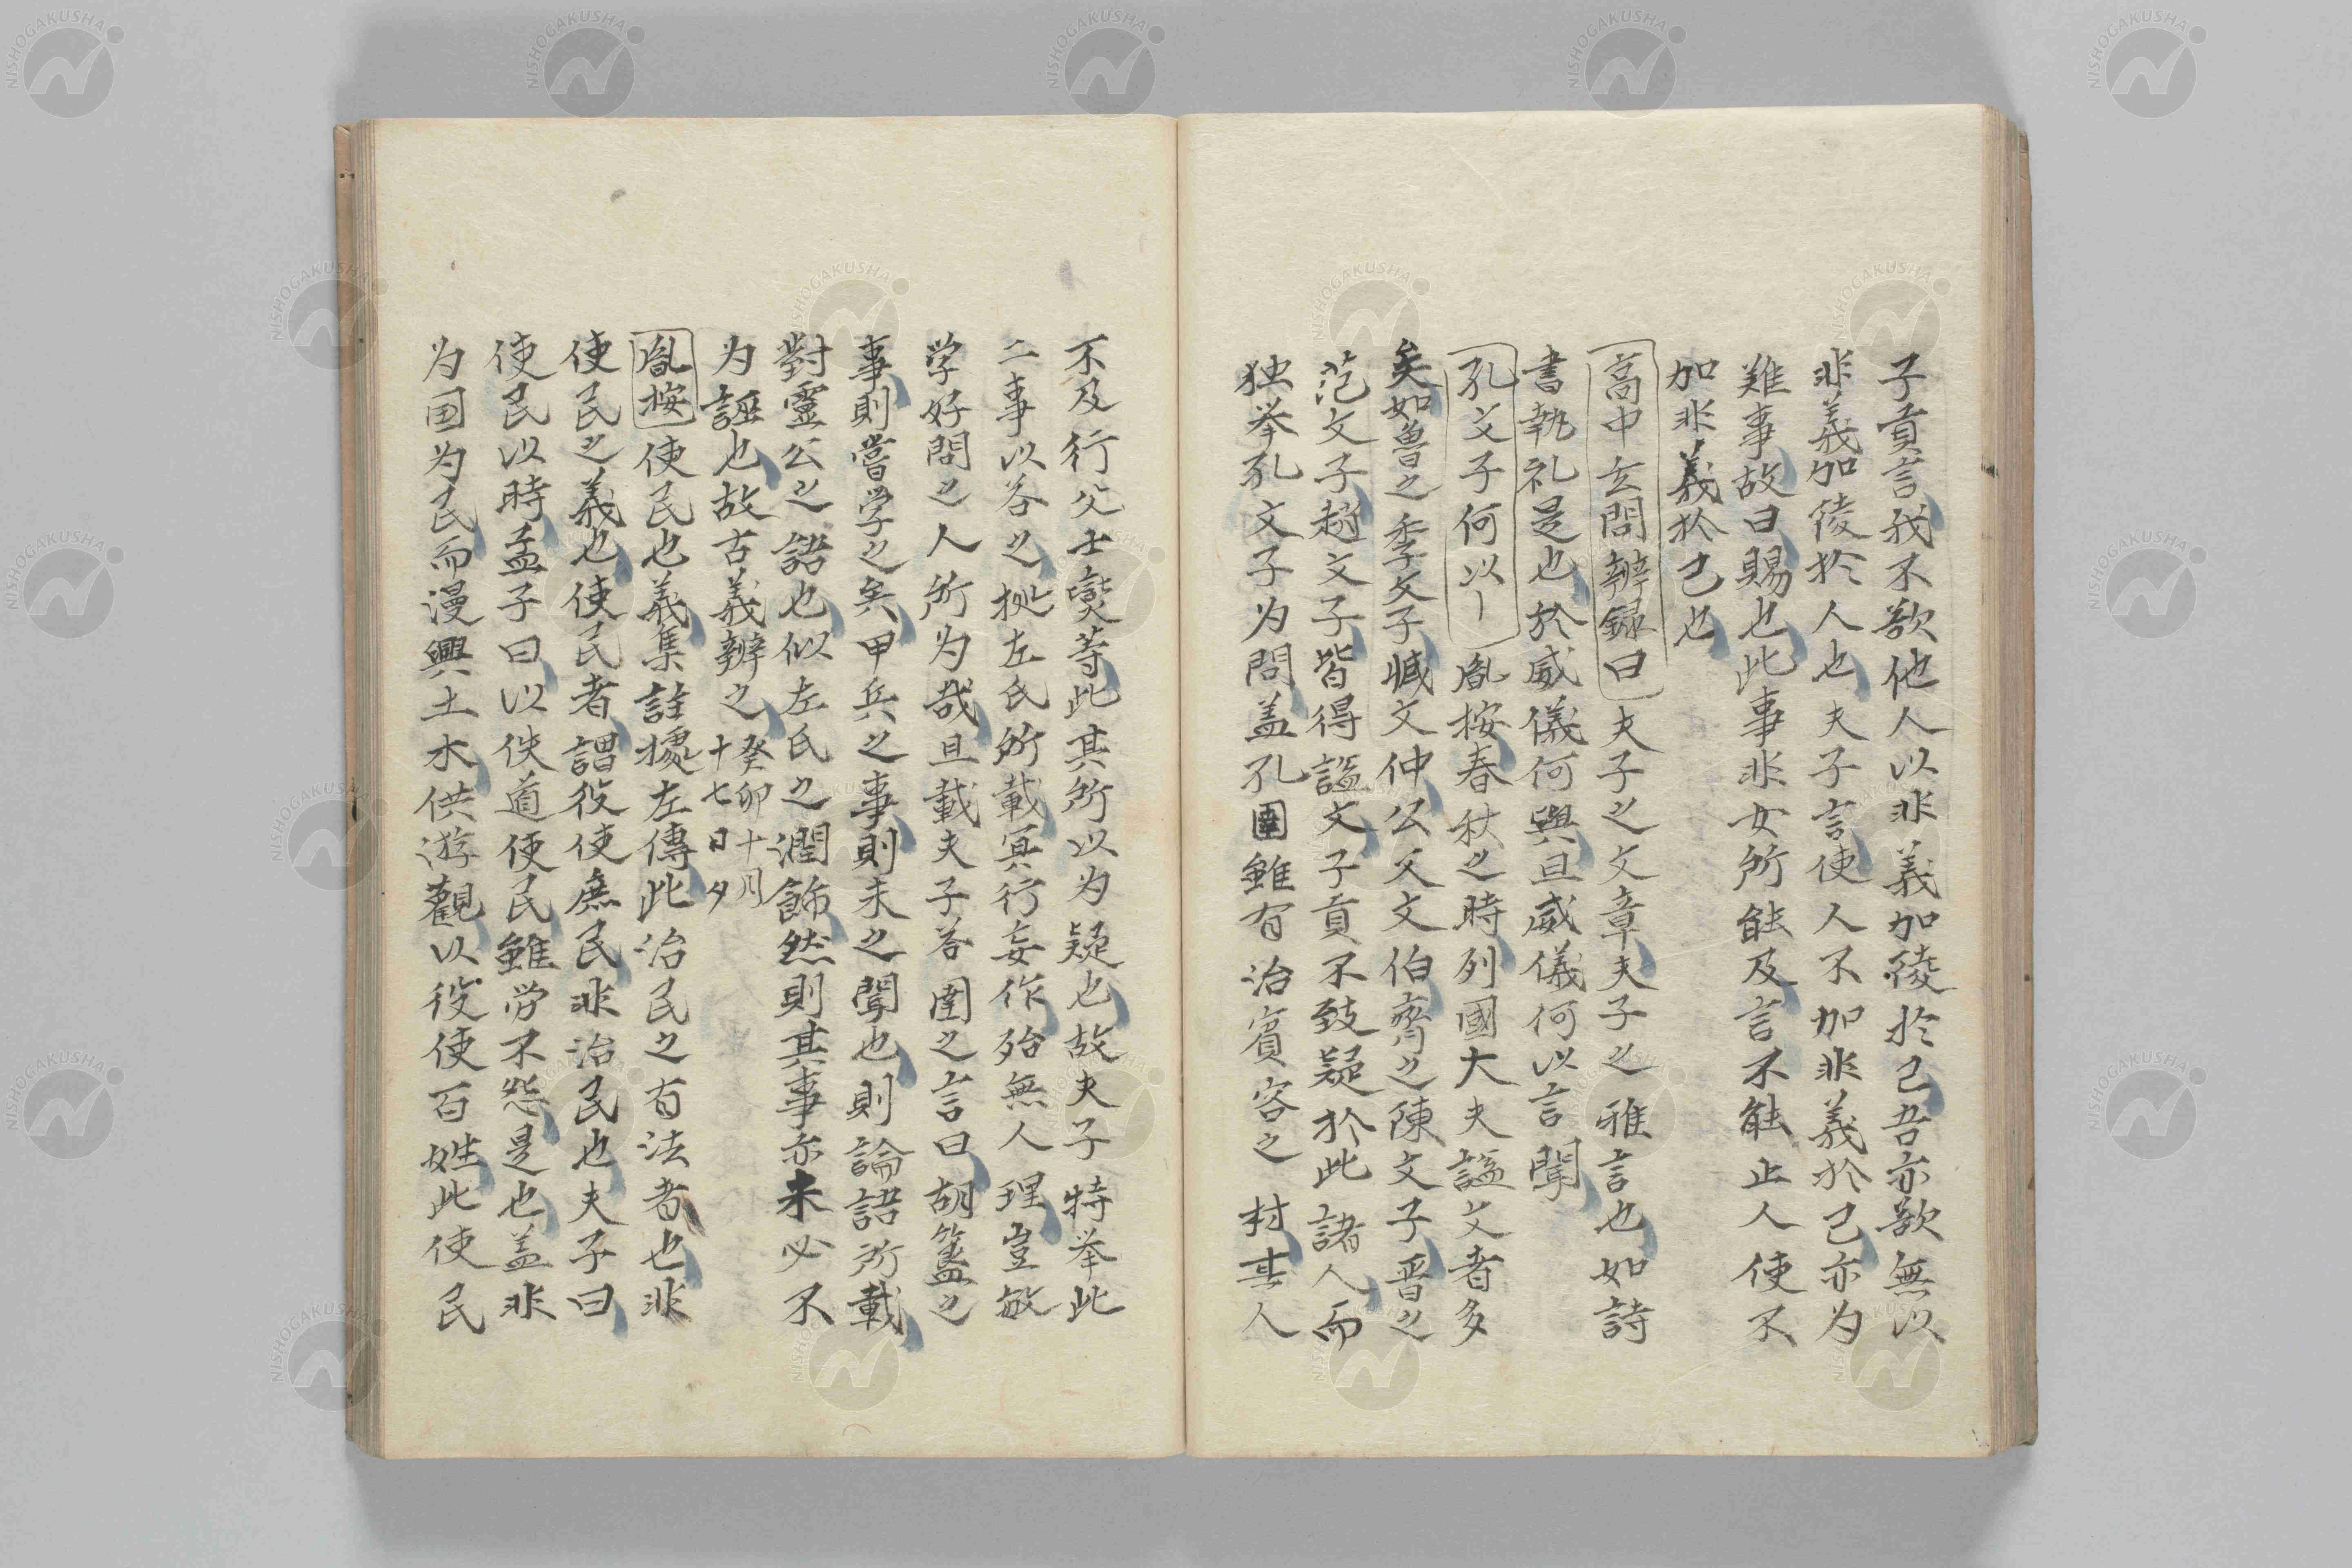 子貢言我不欲他人以非義加陵於己吾亦欲無以
非義加陵於人也夫子言使人不加非義於己亦为
難事故曰賜也此事非女所能及言不能止人使不
加非義於己也
高中玄問辨録曰夫子之文章夫子之雅言也如詩
書執礼是也於威儀何與且威儀何以言聞
孔文子何以｜胤按春秋之時列國大夫諡文者多
矣如魯之季文子臧文仲公父文伯齊之陳文子晋之
范文子趙文子皆得諡文子貢不致疑於此諸人而
独举孔文子为問盖孔圉雖有治賓客之村其人
不及行父士燮等此其所以为疑也故夫子特举此
二事以答之拠左氏所載冥行妄作殆無人理豈敏
学好問之人所为哉且載夫子答圉之言曰胡簋之
事則嘗学之矣甲兵之事則未之聞也則論語所載
對霊公之語也似左氏之潤飾然則其事亦未必不
为誣也故古義辨之癸卯十月
十七日夕
胤按使民也義集註據左傳此治民之有法者也非
使民之義也使民者謂役使庶民非治民也夫子曰
使民以時孟子曰以佚道使民雖労不怨是也盖非
为国为民而漫興土木供游觀以役使百姓此使民
NISHOGAKUSHA